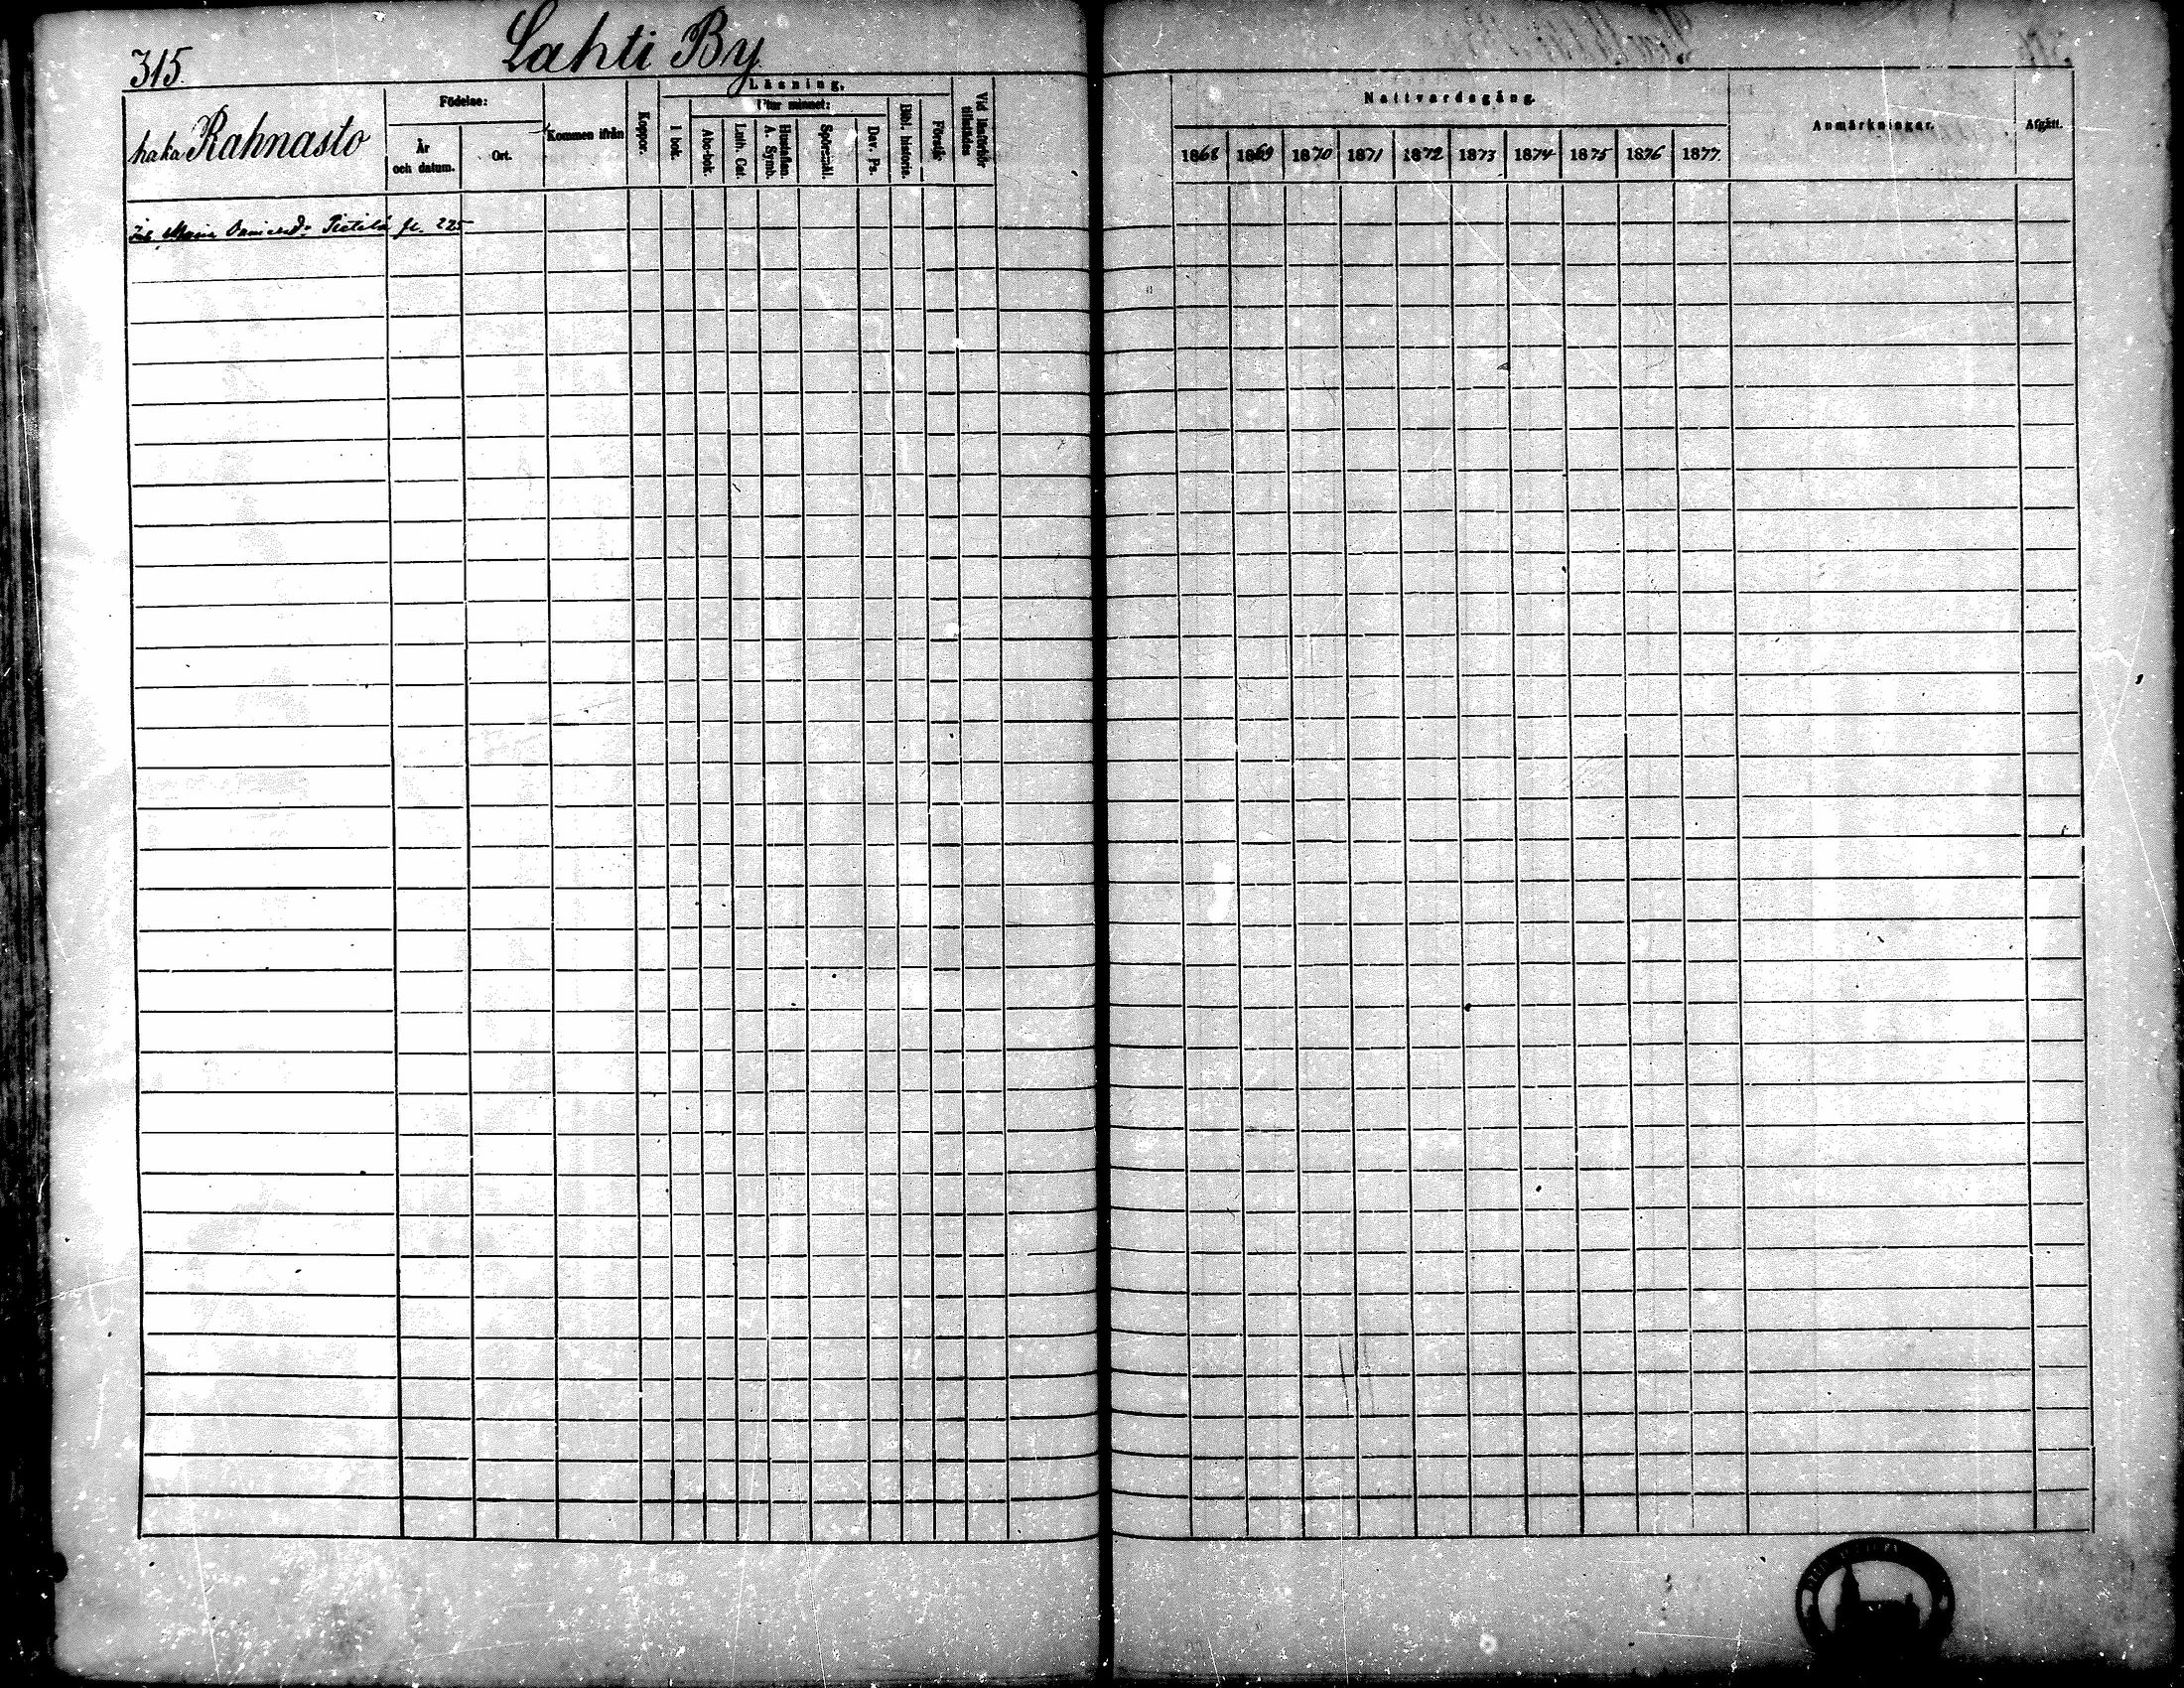 315.
Lahti By
haka Rahnasto
Födelse:
År
och datum.
Ort.
Kommen ifrån
Koppor.
Läsning.
I bok.
Utur minnet:
Abc-bok.
Luth. Cat.
Hustaflan.
A. Symb.
Spörsmål.
Dav. Ps.
Bibl. historie.
Förstår
Vid läsförhör
tillstädes
Maria Pietilä fl. 225
Nattvardsgång.
1868 1869 1870 1871 1872 1873 1874 1875 1876 1877.
Anmärkningar.
Afgått.